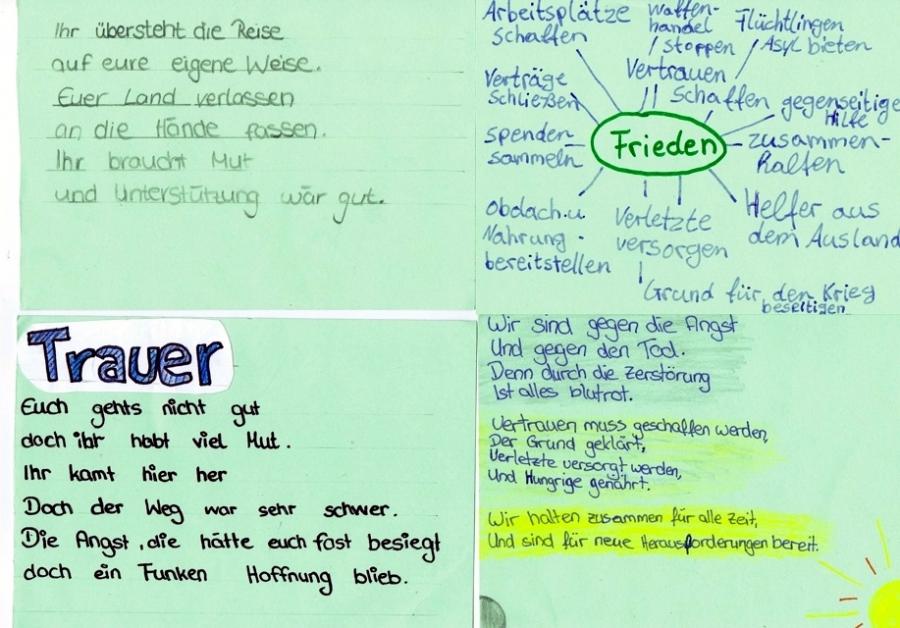 Ihr übersteht die Reise
auf eure eigene Weise.
Euer Land verlassen
an die Hände fassen.
Ihr braucht Mut
und Unterstützung wär gut.
Arbeitsplätze
schaffen
Waffen-
handel
stoppen
Flüchtlingen
Asyl bieten
Verträge
schließen
Vertrauen
schaffen
gegenseitige
Hilfe
spenden
sammeln
Frieden
zusammen-
halten
Obdach u.
Nahrung
bereitstellen
Verletzte
versorgen
Helfer aus
dem Ausland
Grund für den Krieg
beseitigen
Trauer
Euch gehts nicht gut
doch ihr habt viel Mut.
Ihr kamt hier her
Doch der Weg war sehr schwer.
Die Angst, die hätte euch fast besiegt
doch ein Funken Hoffnung blieb.
Wir sind gegen die Angst
Und gegen den Tod.
Denn durch die Zerstörung
Ist alles blutrot.
Vertrauen muss geschaffen werden,
Der Grund geklärt,
Verletzte versorgt werden,
Und Hungrige genährt.
Wir halten zusammen für alle Zeit,
Und sind für neue Herausforderungen bereit.